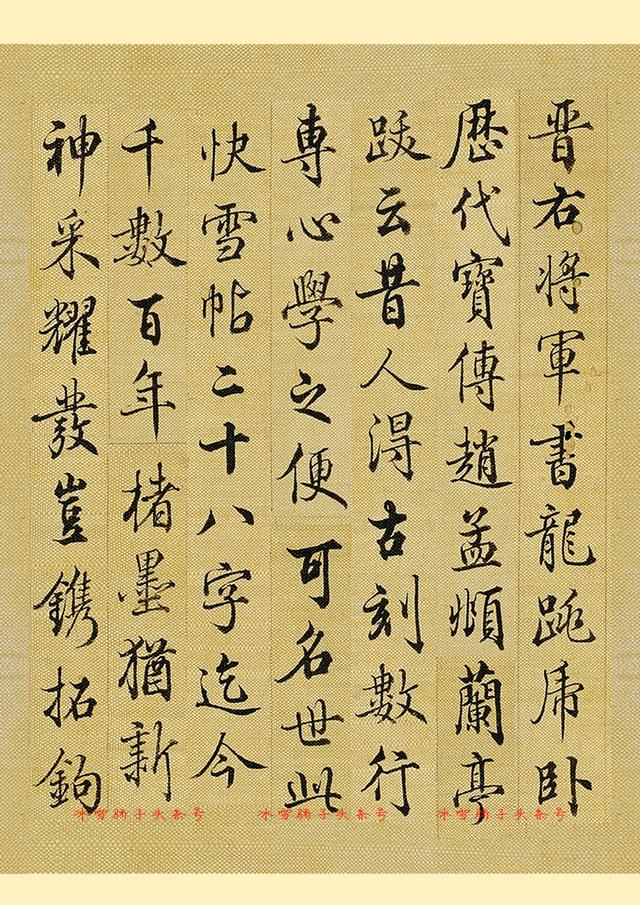 晋右将軍書龍跳虎卧
歴代寶傳趙孟頫蘭亭
跋云昔人得古刻數行
專心學之便可名世此
快雪帖二十八字迄今
千數百年楮墨猶新
神采耀發豈鐫拓鉤
冰雪騎手头条号 冰雪騎手头条号 冰雪騎手头条号